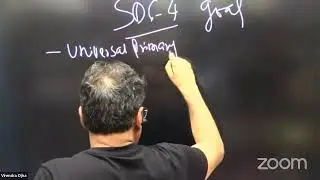 SDG-4 goal
- Universal Primary
Virendra Ojha
zoom